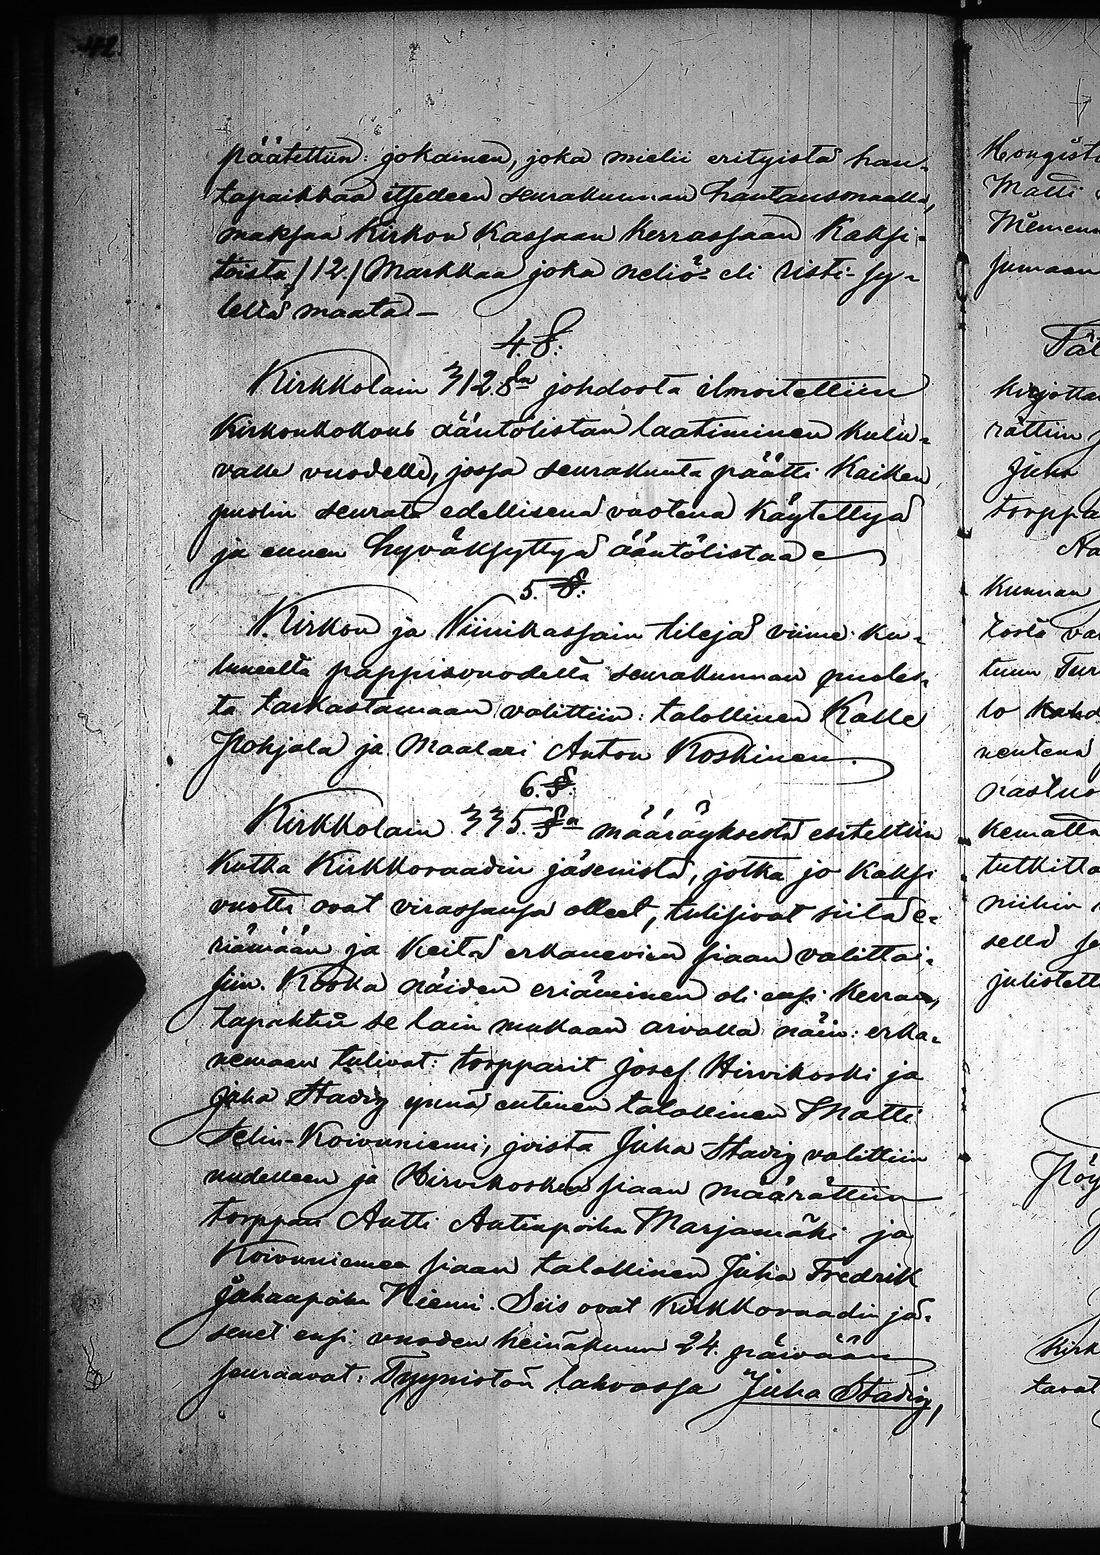 42.
päätettiin: jokainen, joka mielii erityistä hau-
tapaikkaa itsedeen seurakunnan hautausmaalla,
maksaa Kirkon Kassaan Kerrassaan Kaksi-
toista /12/ Markkaa joka neliö- eli risti-sy-
leltä maata –
4. §:
Kirkkolain 312 §:n johdosta ilmoitettiin
Kirkonkokous ääntölistan laatiminen kulu-
valle vuodelle, jossa seurakunta päätti Kaiken
puolin seurata edellisenä vuotena Käytettyä
ja ennen hyväksyttyä ääntölistaa
5. §:
Kirkon ja Viinikassain tilejä viime ku-
luneelta pappisvuodelta seurakunnan puoles-
ta tarkastamaan valittiin: talollinen Kalle
Pohjala ja Maalari Anton Koskinen.
6. §:
Kirkkolain 335 §:n määräyksestä esiteltiin
Kutka Kirkkoraadin jäsenistä, jotka jo Kaksi
vuotta ovat virassansa olleet, tulisivat siitä e-
riämään ja Keitä erkanevien siaan valittai-
siin. Koska näiden eriäminen oli ensi Kerran,
tapahtui se lain mukaan arvalla näin: erka-
nemaan tulivat: torpparit Josef Hirvikoski ja
Juha Stadig ynnä entinen talollinen Matti
Selin-Koivuniemi, joista Juha Stadig valittiin
uudelleen ja Hirvikosken siaan määrättiin
torppari Antti Antinpoika Marjamäki ja
Koivuniemen siaan talollinen Juha Fredrik
Juhanpoika Niemi. Siis ovat Kirkkoraadin jä-
senet ensi vuoden heinäkuun 24. päivään
seuraavat: Tyynistön lahossa Juha Stadig,
Hongisto
Matti
jumaan
rättiin
Juha
torppa
Kunnan
tosta
tuun
to
nentenä
Kematta
tutkitta
niihin